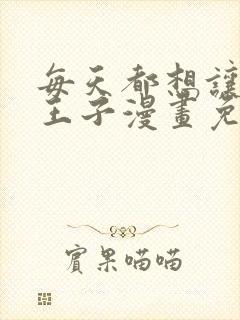 每天都想讓
王子漫畫免
賓果喵喵